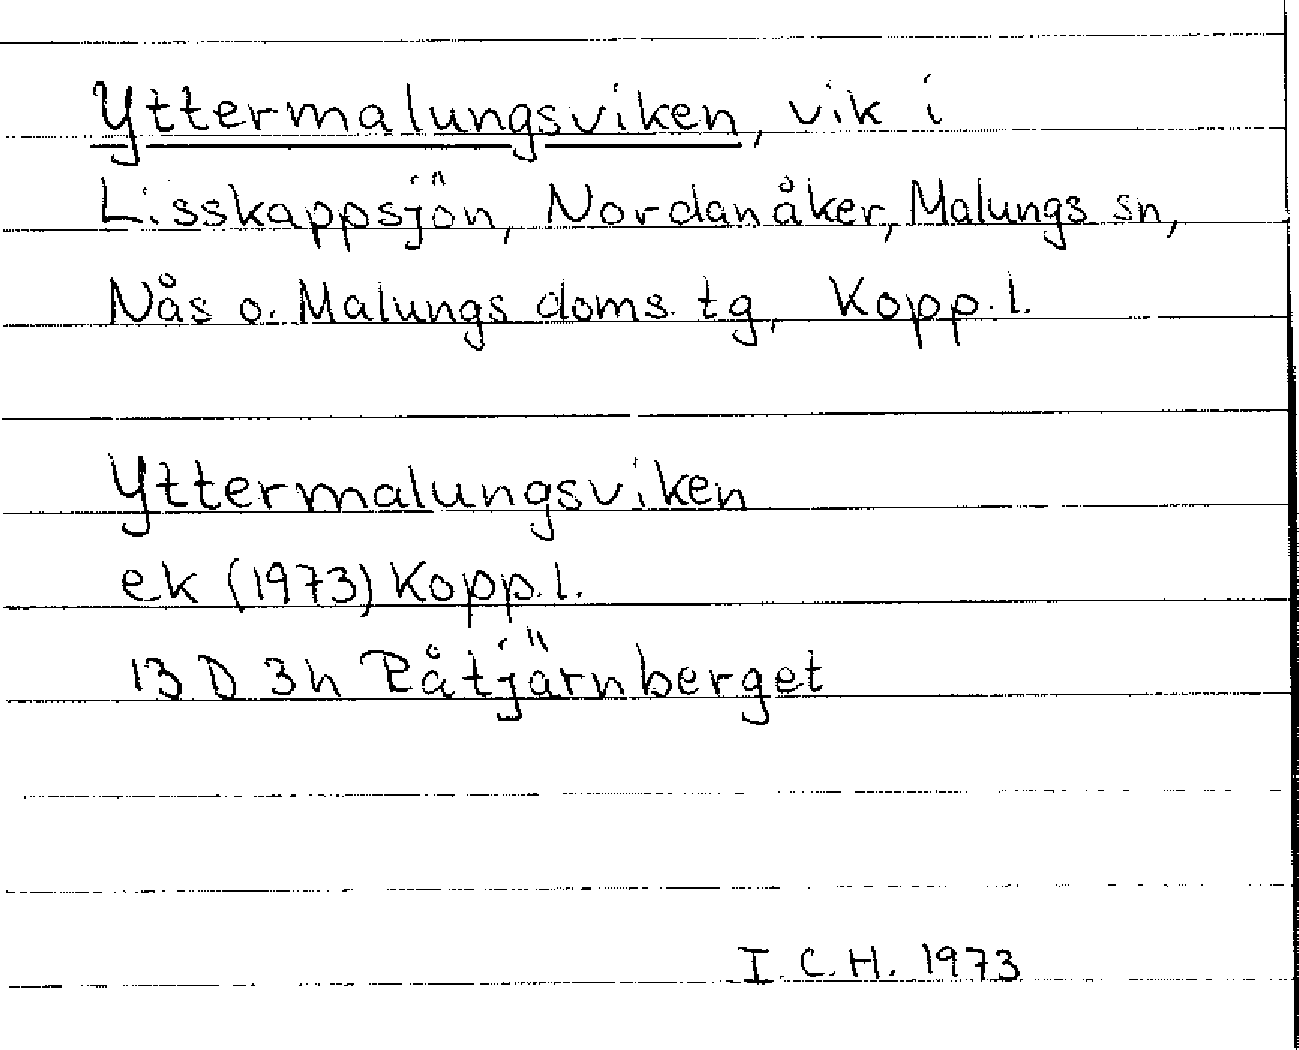 Yttermalungsviken, vik i
Lisskappsjön, Nordanåker, Malungs sn,
Nås o. Malungs doms. tg, Kopp. l.
Yttermalungsviken
ek (1973) Kopp. l.
13 D 3h Råtjärnberget
I. C. H. 1973